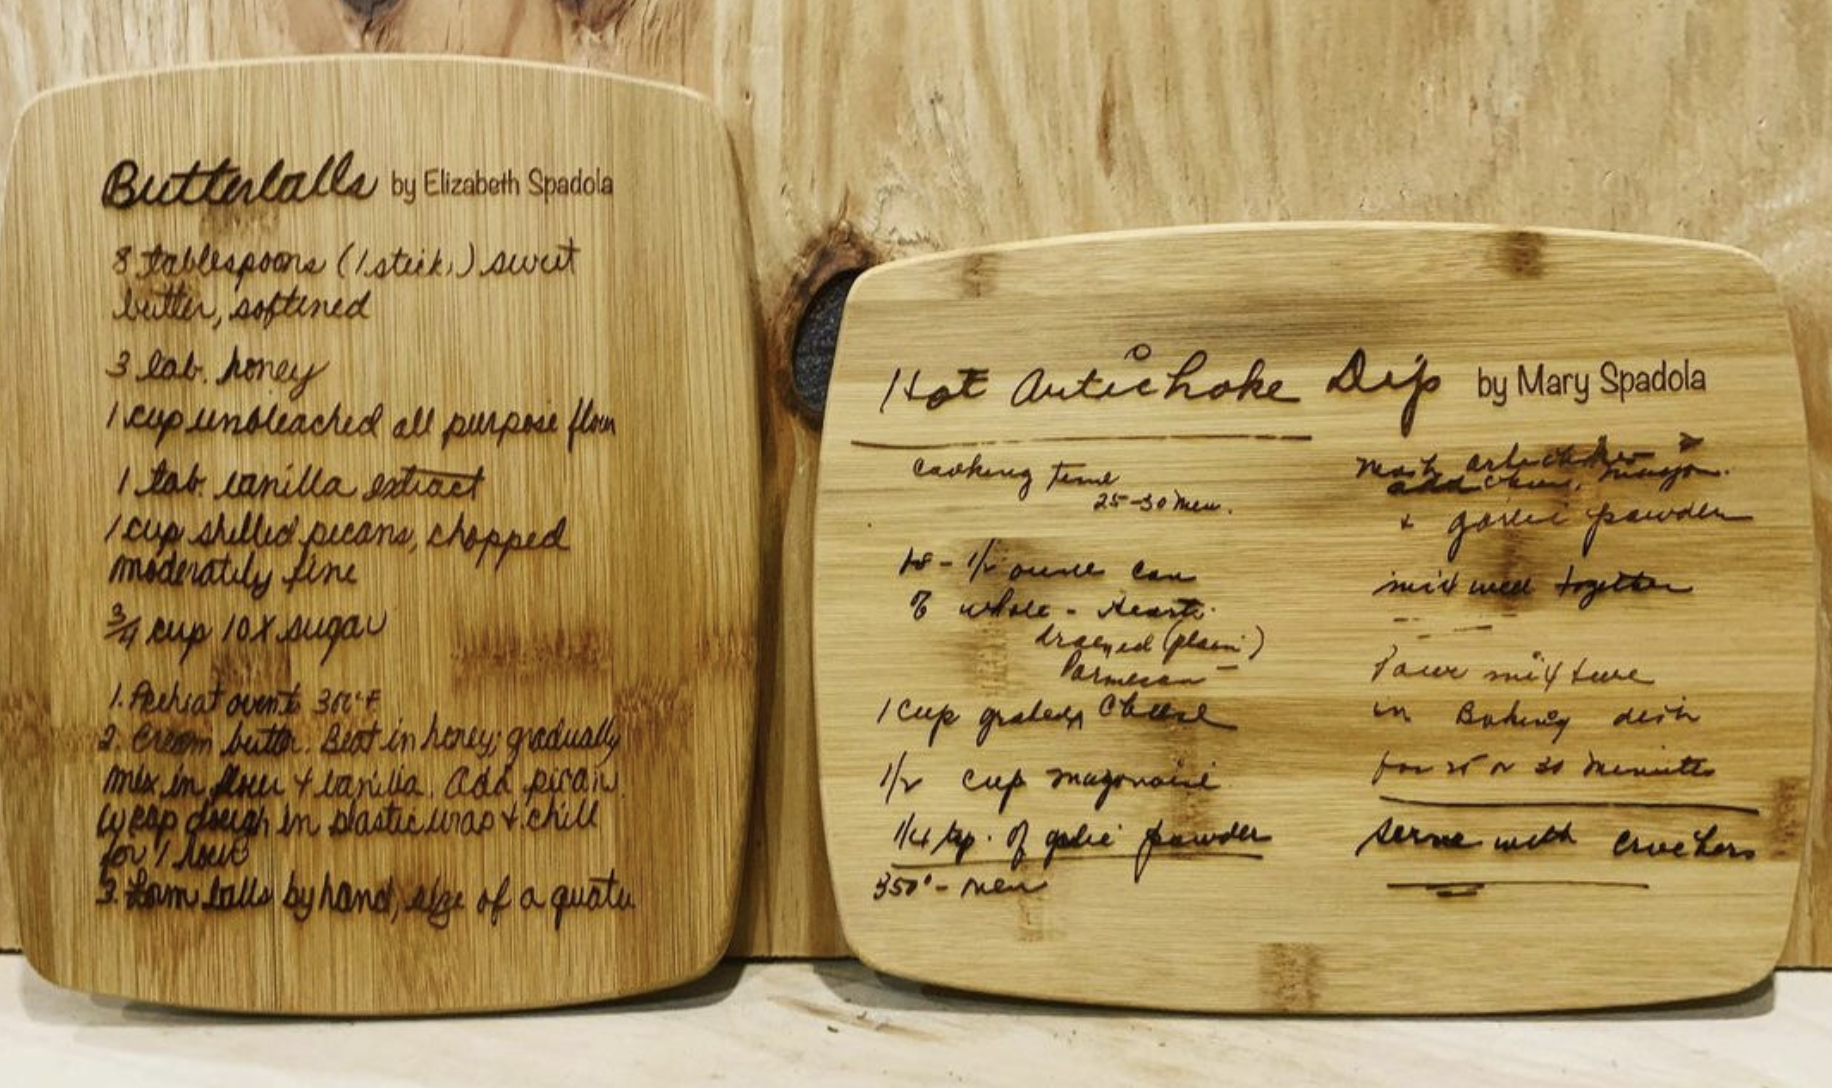 Butterballs by Elizabeth Spadola
8 tablespoons (1 stick) sweet
butter, softened
3 tab. honey
1 cup unbleached all purpose flour
1 tab. vanilla extract
1 cup shelled pecans, chopped
moderately fine
3/4 cup 10X sugar
1. Preheat oven to °F
2. Cream butter. Beat in honey; gradually
mix in flour + vanilla. Add pecans.
Wrap dough in plastic wrap + chill
for 1 hour
3. Form balls by hand, size of a quarter
Hot Artichoke Dip by Mary Spadola
cooking time
25-30 min.
1/2 ounce can
whole - Hearts
drained (plain)
Parmesan
1 cup grated cheese
1/2 cup mayonaise
1/4 tsp. of garlic powder
350° -
Mash artichokes
add cheese, mayon.
+ garlic powder
mix well together
Pour mixture
in Baking dish
for 25 or 30 minutes
serve with crackers